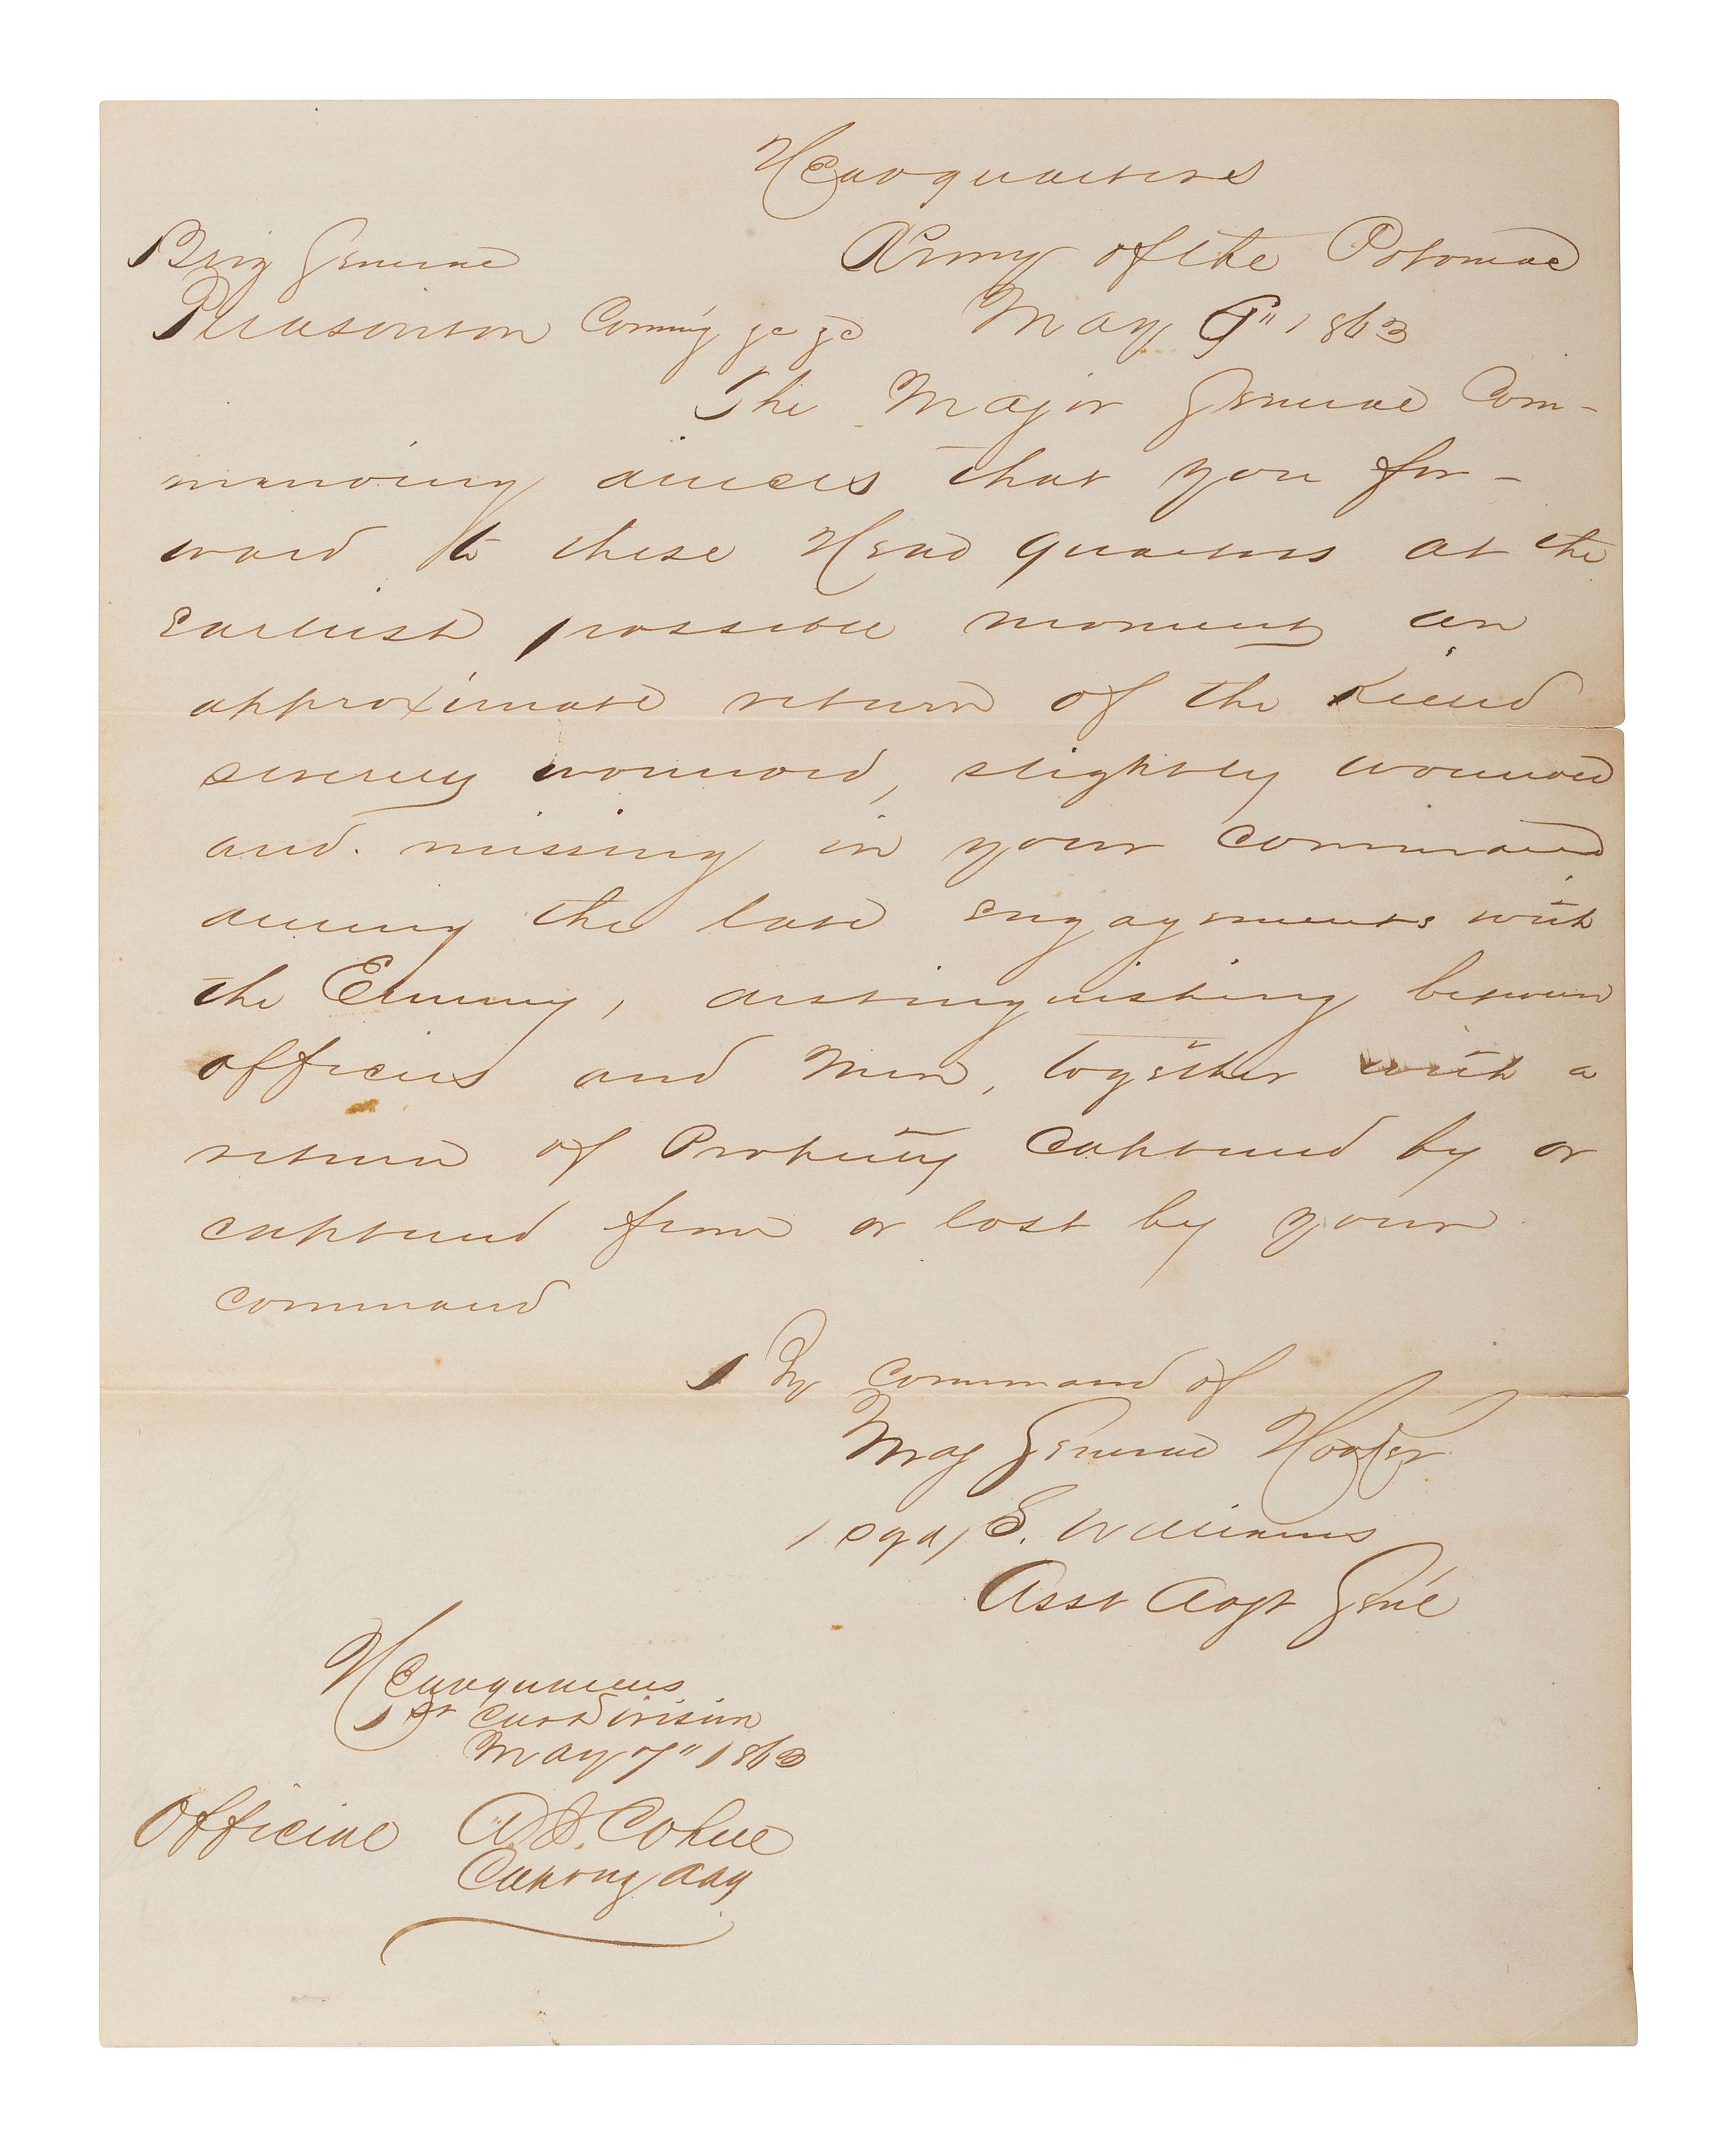 Headquarters
Brig General
Army of the Potomac
Pleasonton Comm'g &c &c
May 1863
The Major General Com-
manding directs that you for-
ward to these Head quarters at the
Earliest possible moment an
approximate return of the Killed
severely wounded, slightly wounded
and missing in your command
during the late engagements with
the Enemy, distinguishing between
officers and Men, together with a
return of Property Captured by or
captured from or lost by your
command
By command of
Maj General Hooker
sgd S. Williams
Asst Adgt Gen'l
Headquarters
1st Cav Division
May 7" 1863
Official A. J. Cohen
Capt & aag